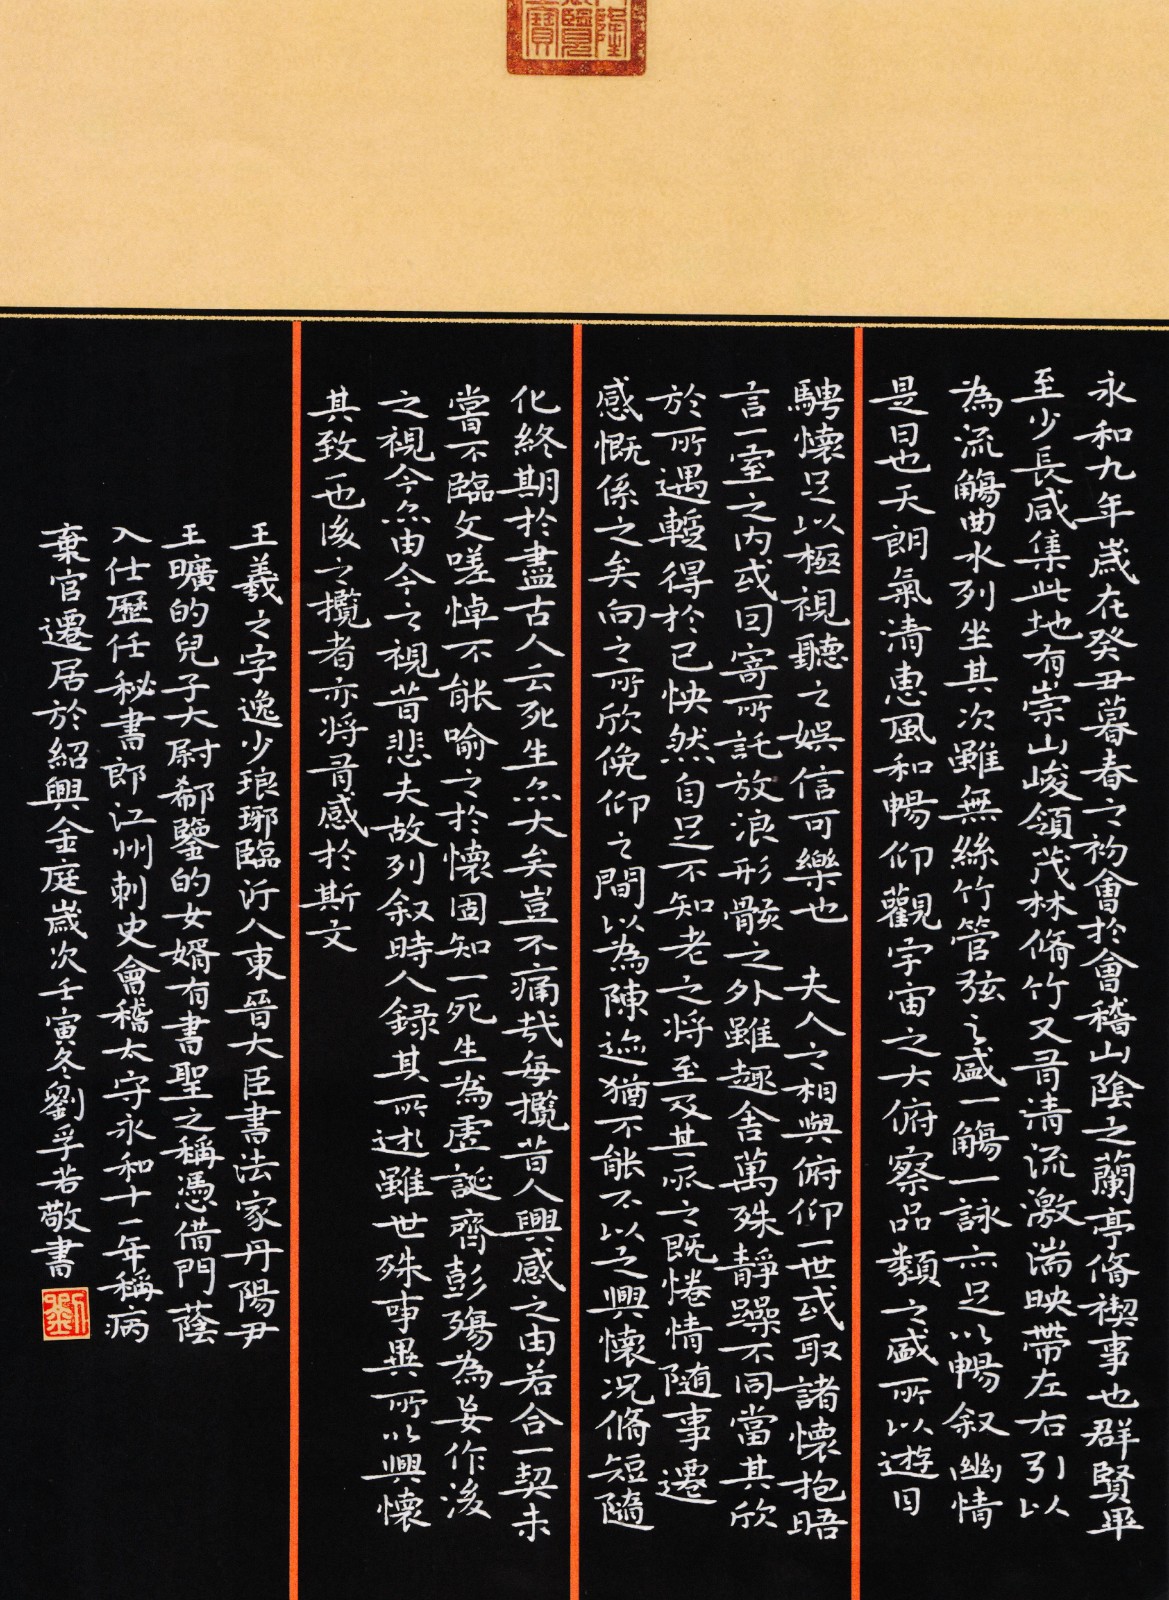 永和九年歲在癸丑暮春之初會於會稽山陰之蘭亭脩禊事也群賢畢
至少長咸集此地有崇山峻領茂林脩竹又有清流激湍映帶左右引以
為流觴曲水列坐其次雖無絲竹管弦之盛一觴一詠亦足以暢叙幽情
是日也天朗氣清惠風和暢仰觀宇宙之大俯察品類之盛所以遊目
騁懷足以極視聽之娛信可樂也　夫人之相與俯仰一世或取諸懷抱晤
言一室之內或因寄所託放浪形骸之外雖趣舍萬殊靜躁不同當其欣
於所遇暫得於己怏然自足不知老之將至及其所之既惓情隨事遷
感慨係之矣向之所欣俛仰之間以為陳迹猶不能不以之興懷況脩短隨
化終期於盡古人云死生亦大矣豈不痛哉每攬昔人興感之由若合一契未
嘗不臨文嗟悼不能喻之於懷固知一死生為虛誕齊彭殤為妄作後
之視今亦由今之視昔悲夫故列叙時人錄其所述雖世殊事異所以興懷
其致一也後之攬者亦將有感於斯文
王羲之字逸少琅琊臨沂人東晉大臣書法家丹陽尹
王曠的兒子大尉郗鑒的女婿有書聖之稱憑借門蔭
入仕歷任秘書郎江州刺史會稽太守永和十一年稱病
棄官遷居於紹興金庭歲次壬寅冬劉孚若敬書